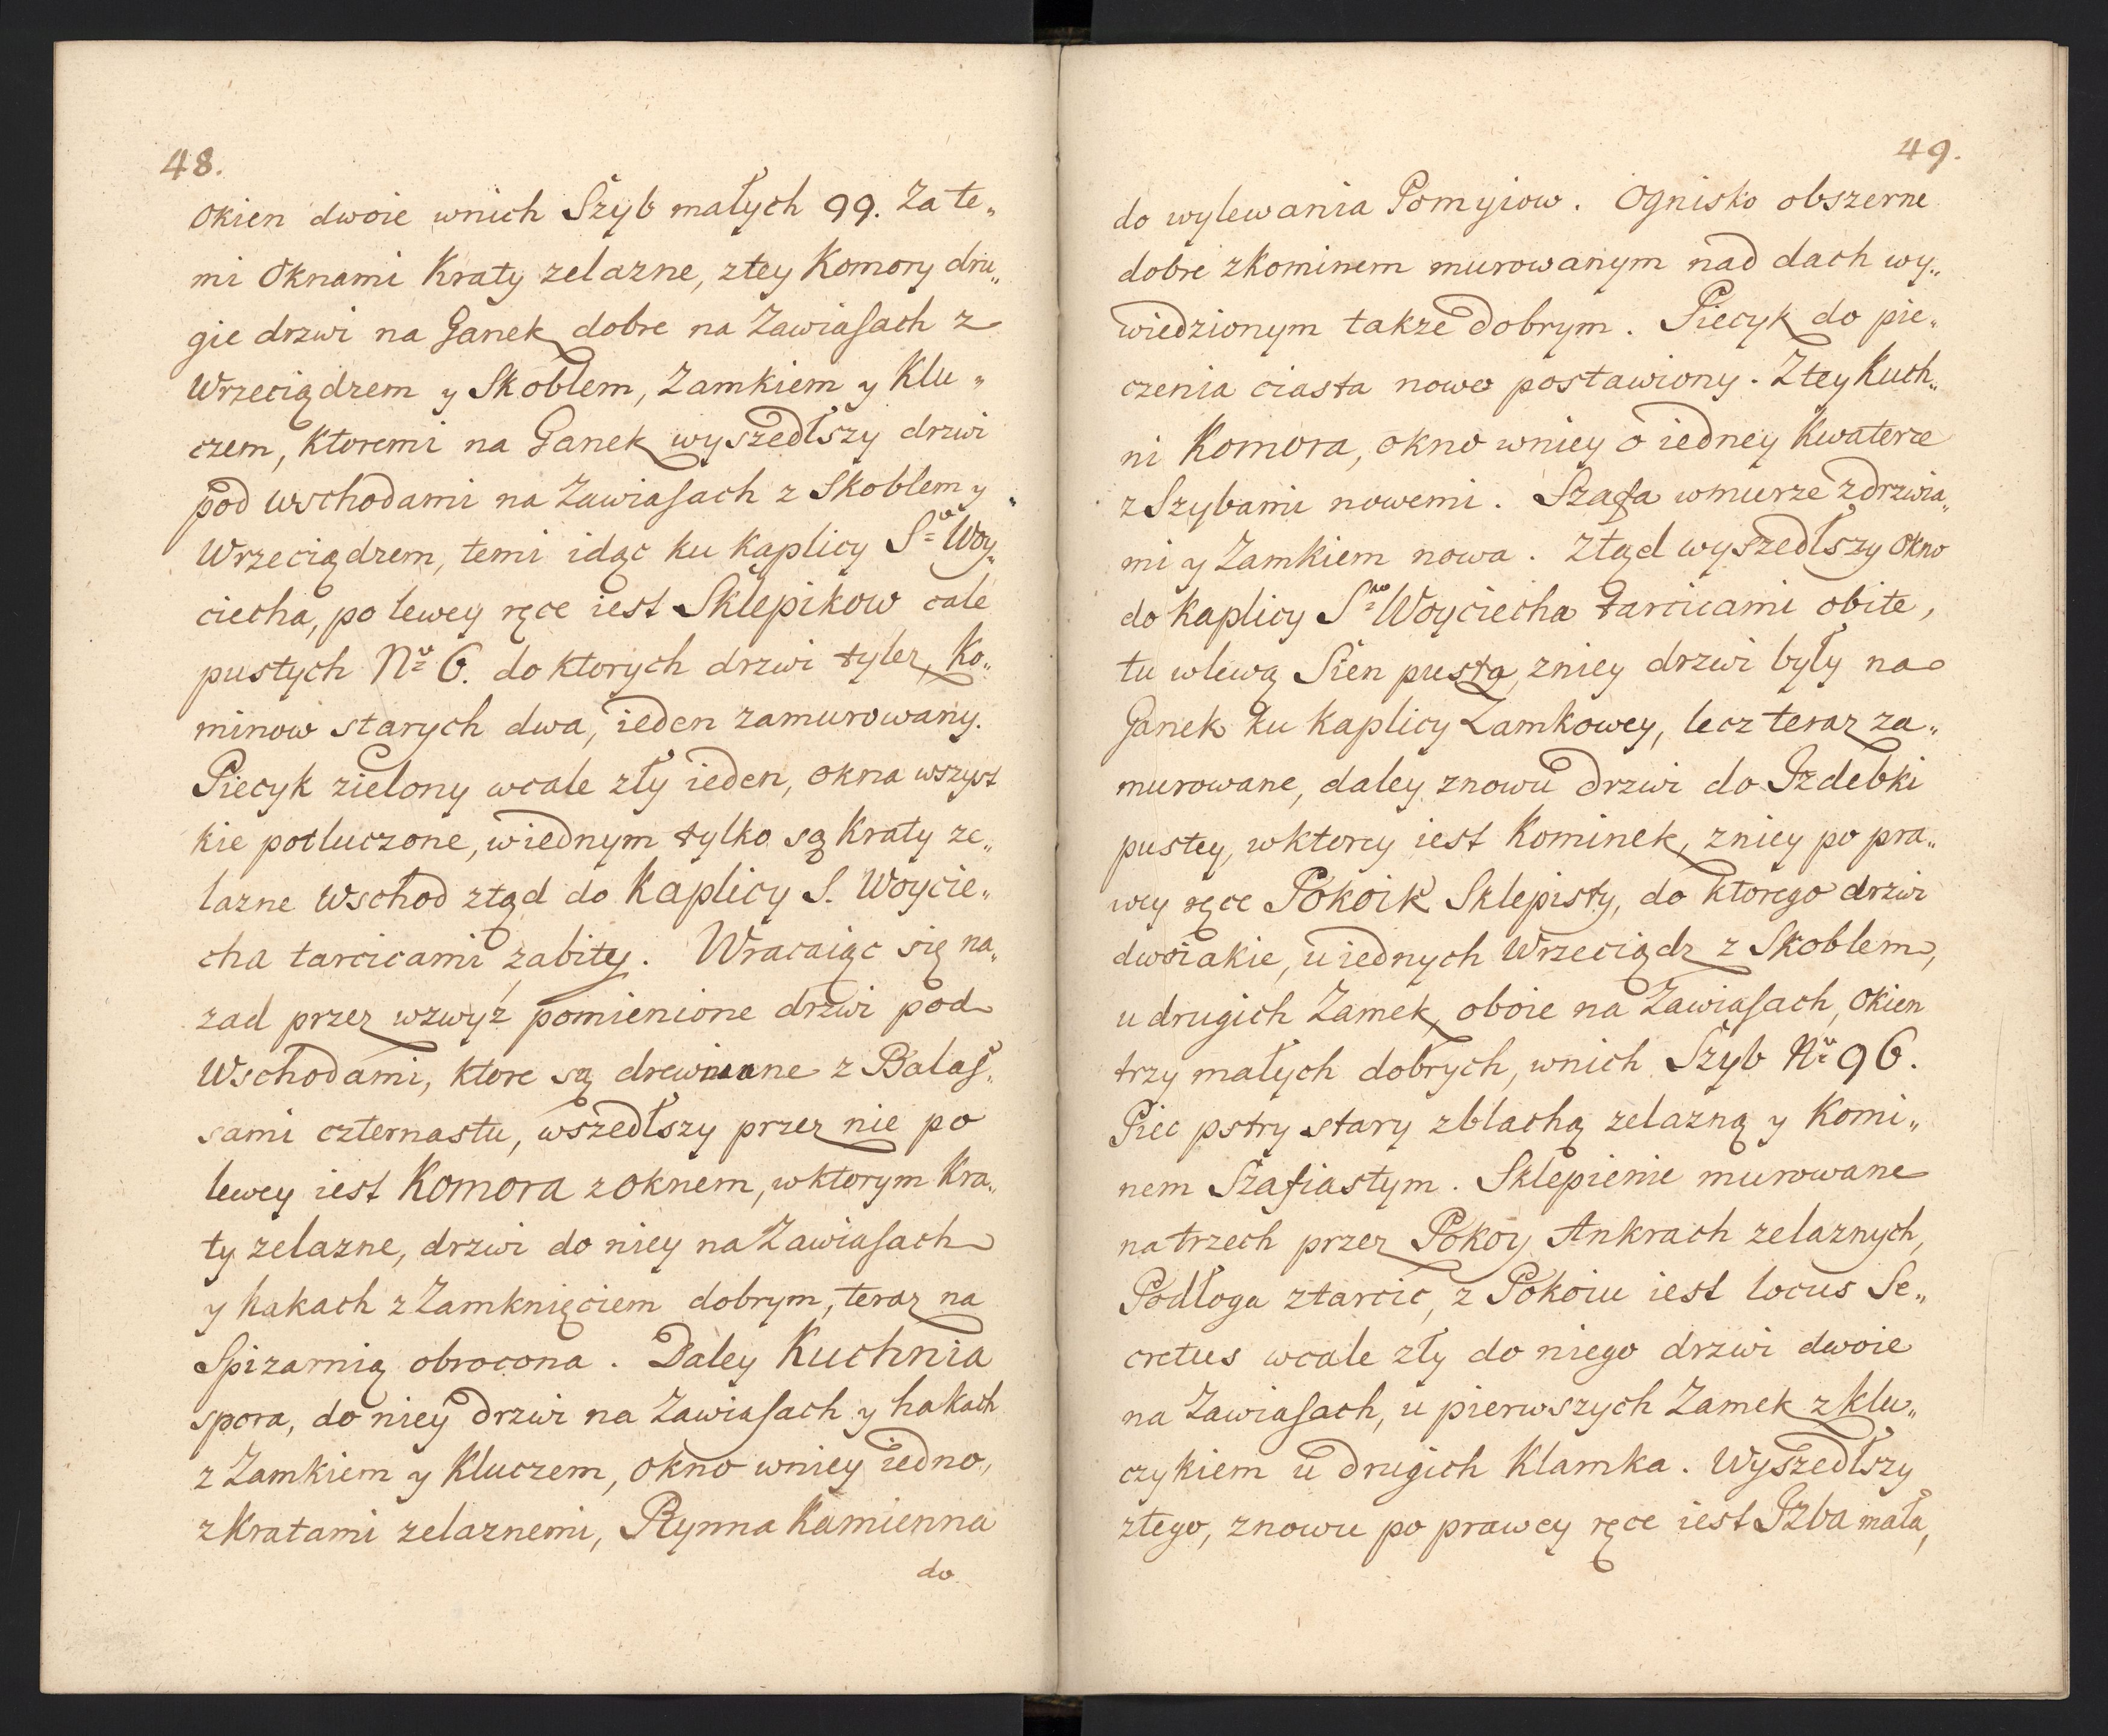 48.
Okien dwoie wnich Szyb małych 99. Za te„
mi Oknami Kraty zelazne, ztey Komory dru„
gie drzwi na Ganek dobre na Zawiasach z
Wrzeciądzem y Skoblem, Zamkiem y Klu„
czem, Ktoremi na Ganek wyszedłszy drzwi
pod wschodami na Zawiasach z Skoblem y
Wrzeciądzem, temi idąc ku Kaplicy Sº Woy„
ciecha, po lewey ręce iest Sklepikow cale
pustych Nº 6. do ktorych drzwi tylez, Ko„
minow starych dwa, ieden zamurowany.
Piecyk zielony wcale zły ieden, okna wszyst
kie potluczone, wiednym tylko są Kraty ze„
lazne Wschod ztąd do Kaplicy S. Woycie„
cha tarcicami zabity. Wracaiąc się na„
zad przez wzwyż pomienione drzwi pod
Wschodami, ktore są drewniane z Balas„
sami czternastu, wszedłszy przez nie po
lewey iest Komora z oknem, wktorym Kra„
ty zelazne, drzwi do niey na Zawiasach
y hakach z Zamknięciem dobrym, teraz na
Spizarnią obrocona. Daley Kuchnia
spora, do niey drzwi na Zawiasach y hakach
z Zamkiem y Kluczem, okno wniey iedno,
z Kratami zelaznemi, Rynna Kamienna
do
49.
do wylewania Pomyiow. Ognisko obszerne
dobre z kominem murowanym nad dach wy„
wiedzionym takze dobrym. Piecyk do pie„
czenia ciasta nowo postawiony. Ztey Kuch„
ni Komora, okno wniey o iedney Kwaterze
z Szybami nowemi. Szafa wmurze z drzwia„
mi y Zamkiem nowa. Ztąd wyszedłszy okno
do Kaplicy Sgo Woyciecha tarcicami obite,
tu wlewą Sien pusta, zniey drzwi były na
Ganek ku Kaplicy Zamkowey, lecz teraz za„
murowane, daley znowu drzwi do Izdebki
pustey, wktorey iest Kominek, zniey po pra„
wey ręce Pokoik Sklepisty, do ktorego drzwi
dwoiakie, u iednych Wrzeciądz z Skoblem,
u drugich Zamek, oboie na Zawiasach, okien
trzy małych dobrych, wnich Szyb Nº 96.
Piec pstry stary z blachą zelazną y Komi„
nem Szafiastym. Sklepienie murowane
na trzech przez Pokoy Ankrach zelaznych,
Podłoga ztarcic, z Pokoiu iest locus Se„
cretus wcale zły do niego drzwi dwoie
na Zawiasach, u pierwszych Zamek z klu„
czykiem u drugich Klamka. Wyszedłszy
ztego, znowu po prawey ręce iest Izba mała,